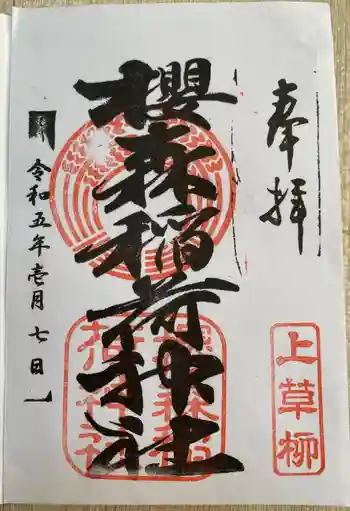 奉拝
上草柳
櫻森稲荷神社
令和五年壱月七日